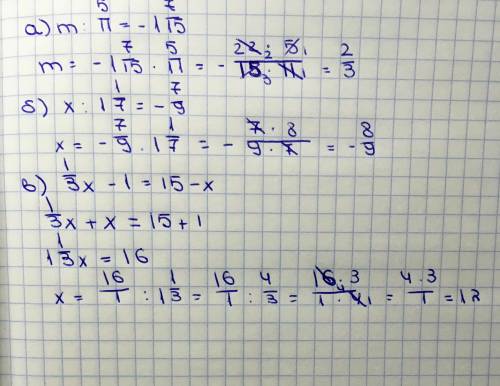 а) m : 5/11 = -1 7/15
m = -1 7/15 · 5/11 = - 22 2 · 5 1 / 15 3 · 11 1 = 2/3
б) x : 1 1/7 = - 7/9
x = - 7/9 · 1 1/7 = - 7 · 8 / 9 · 7 = - 8/9
в) 1/3 x - 1 = 15 - x
1/3 x + x = 15 + 1
1 1/3 x = 16
x = 16/1 : 1 1/3 = 16/1 : 4/3 = 16 4 · 3 / 1 · 4 1 = 4 · 3 / 1 = 12